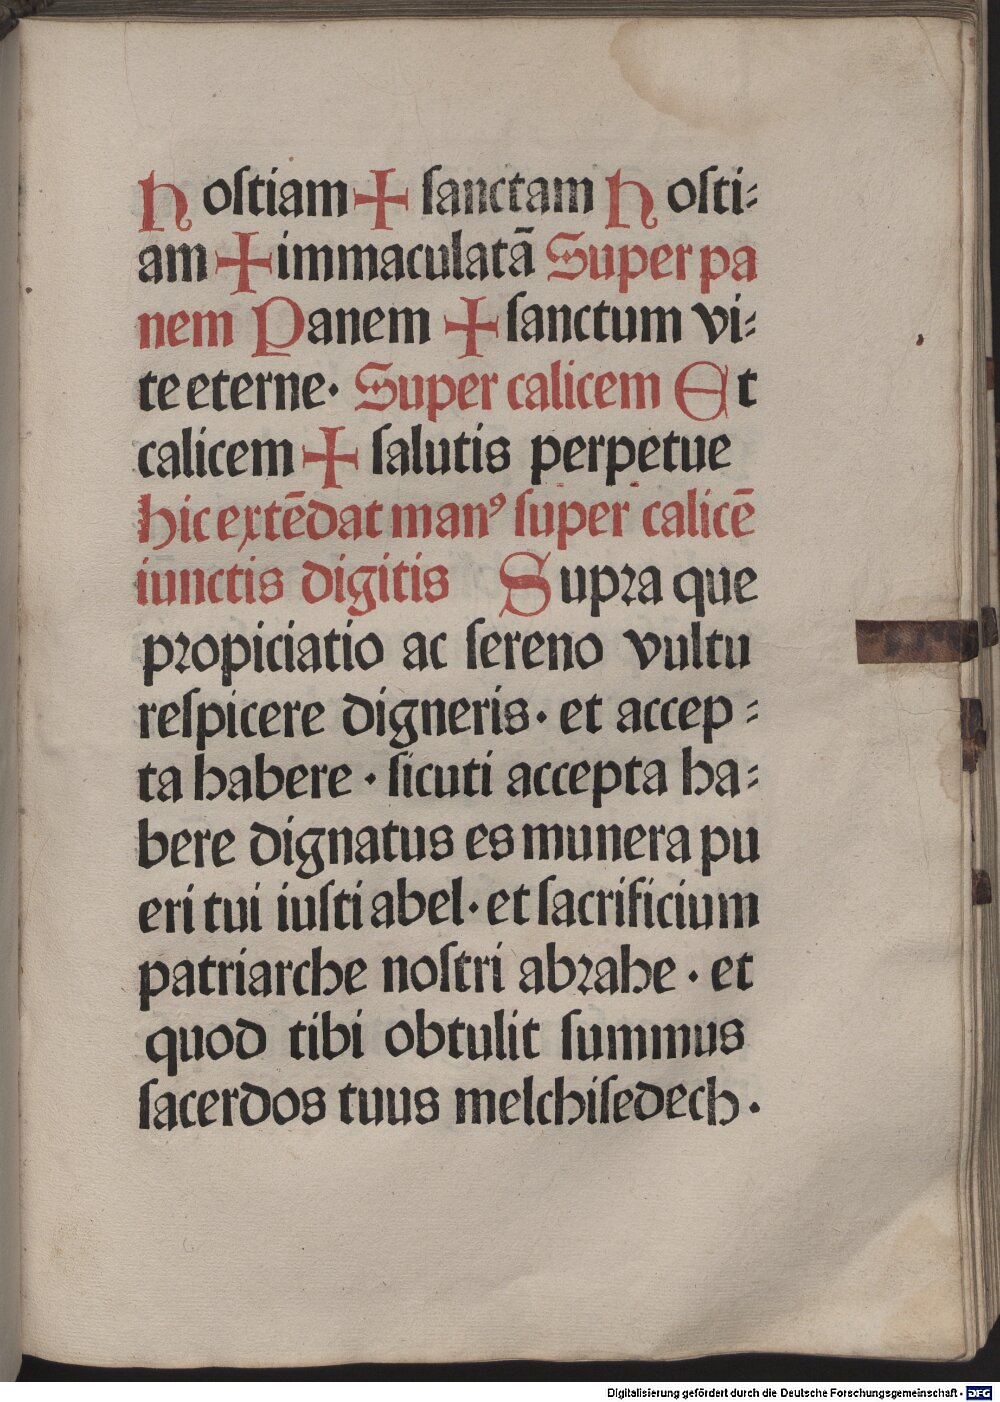 Hoſtiam ✠ ſanctam Hoſti⸗
am ✠ immaculatā Super pa
nem Panem ✠ ſanctum vi⸗
te eterne· Super calicem Et
calicem ✠ ſalutis perpetue
hic extēdat manꝰ ſuper calicē
iunctis digitis Supꝛa que
pꝛopiciatio ac ſereno vultu
reſpicere digneris· et accep⸗
ta habere · ſicuti accepta ha⸗
bere dignatus es munera pu
eri tui iuſti abel· et ſacrificium
patriarche noſtri abꝛahe · et
quod tibi obtulit ſummus
ſacerdos tuus melchiſedech·
Digitalisierung gefördert durch die Deutsche Forschungsgemeinschaft - DFG